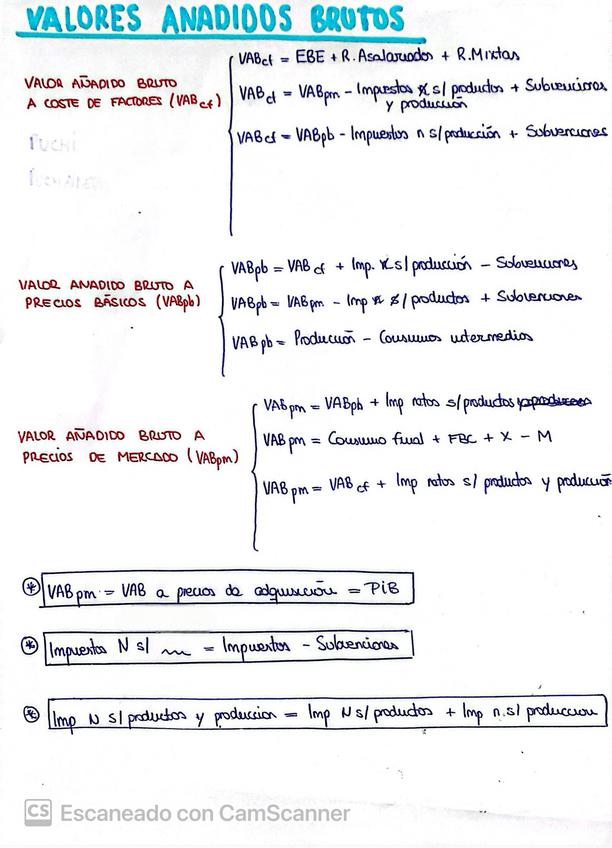 VALORES ANADIDOS BRUTOS
VALOR AÑADIDO BRUTO
A COSTE DE FACTORES (VABcf)
VABcf = EBE + R. Asalariados + R. Mixtas
VABcf = VABpm - Impuestos s/ productos + Subvenciones
y producción
VABcf = VABpb - Impuestos n s/producción + Subvenciones
VALOR ANADIDO BRUTO A
PRECIOS BÁSICOS (VABpb)
VABpb = VABcf + Imp. s/producción - Subvenciones
VABpb = VABpm - Imp s/productos + Subvenciones
VABpb = Producción - Consumos intermedios
VALOR AÑADIDO BRUTO A
PRECIOS DE MERCADO (VABpm)
VABpm = VABpb + Imp netos s/productos
VABpm = Consumo final + FBC + X - M
VABpm = VABcf + Imp netos s/ productos y producción
* VABpm = VAB a precios de adquisición = PiB
* Impuestos N s/ = Impuestos - Subvenciones
* Imp N s/productos y produccion = Imp N s/productos + Imp n. s/ produccion
CS Escaneado con CamScanner